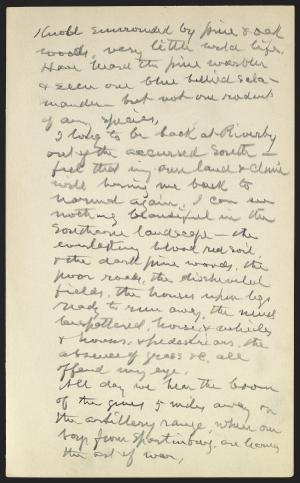 Knoll surrounded by pine & oak
woods, very little wild life.
Have heard the pine warbler
& seen one blue billed Sala-
mander - but not one rodent
of any species.
I long to be back at Riverby
out of the accursed South -
feel that my own land & clime
will bring me back to
normal again. I can see
nothing beautiful in the
Southern landscape - the
everlasting blood red soil,
& the dark pine woods, the
poor roads, the dishevelled
fields, the houses upon legs
ready to run away, the mud
bespattered, horses & vehicles
& horses, & pedestrians, the
absence of grass &c, all
offend my eye.
All day we hear the boom
of the guns 5 miles away on
the artillery range, where our
boys from Spartanburg are learning
the art of war,